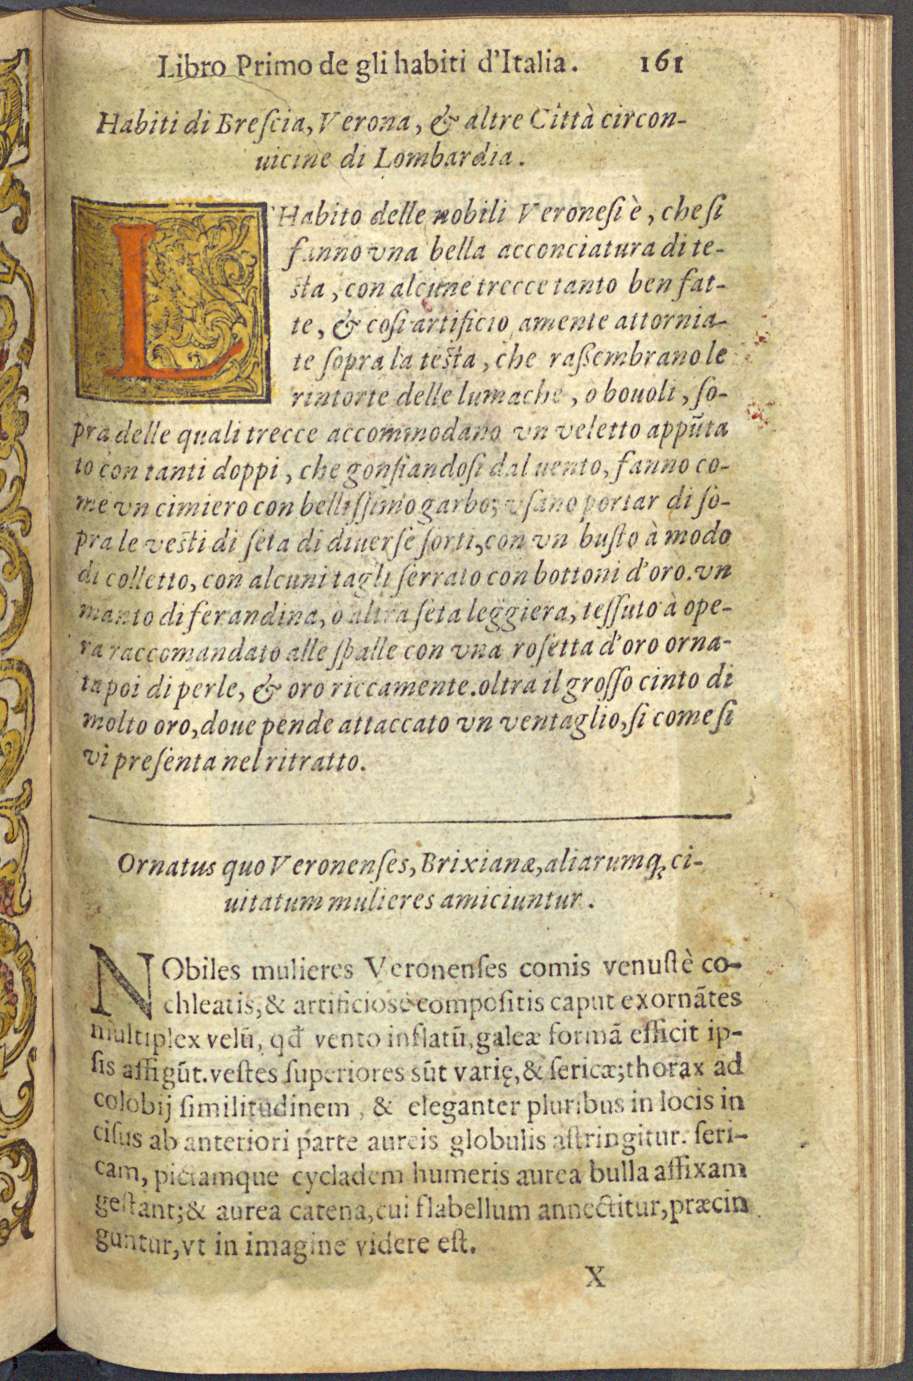 Libro Primo de gli habiti d'Italia. 161
Habiti di Breſcia, Verona, & altre Città circon-
uicine di Lombardia.
L'Habito delle nobili Veroneſi è, che ſi
fanno vna bella acconciatura di te-
ſta, con alcune trecce tanto ben fat-
te, & coſi artificio amente attornia-
te ſopra la teſta, che raſſembrano le
rintorte delle lumache, o bouoli, ſo-
pra delle quali trecce accommodano vn veletto appũta
to con tanti doppi, che gonfiandoſi dal uento, fanno co-
me vn cimiero con belliſſimo garbo; vſano portar di ſo-
pra le veſti di ſeta di diuerſe ſorti, con vn buſto à modo
di colletto, con alcuni tagli ſerrato con bottoni d'oro. vn
manto di ferandina, o altra ſeta leggiera, teſſuto à ope-
ra raccomandato alle ſpalle con vna roſetta d'oro orna-
ta poi di perle, & oro riccamente. oltra il groſſo cinto di
molto oro, doue pende attaccato vn ventaglio, ſi come ſi
vi preſenta nel ritratto.
Ornatus quo Veronenſes, Brixianæ, aliarumq; ci-
uitatum mulieres amiciuntur.
NObiles mulieres Veronenſes comis venuſtè co-
chleatis, & artificiosè compoſitis caput exornãtes
multiplex velũ, qđ vento inflatũ, galeæ formã efficit ip-
ſis affigũt. veſtes ſuperiores sũt varię, & ſericæ; thorax ad
colobij ſimilitudinem, & eleganter pluribus in locis in
ciſus ab anteriori parte aureis globulis aſtringitur. ſeri-
cam, pictamque cycladem humeris aurea bulla affixam
geſtant; & aurea catena, cui flabellum annectitur, præcin
guntur, vt in imagine videre eſt.
X